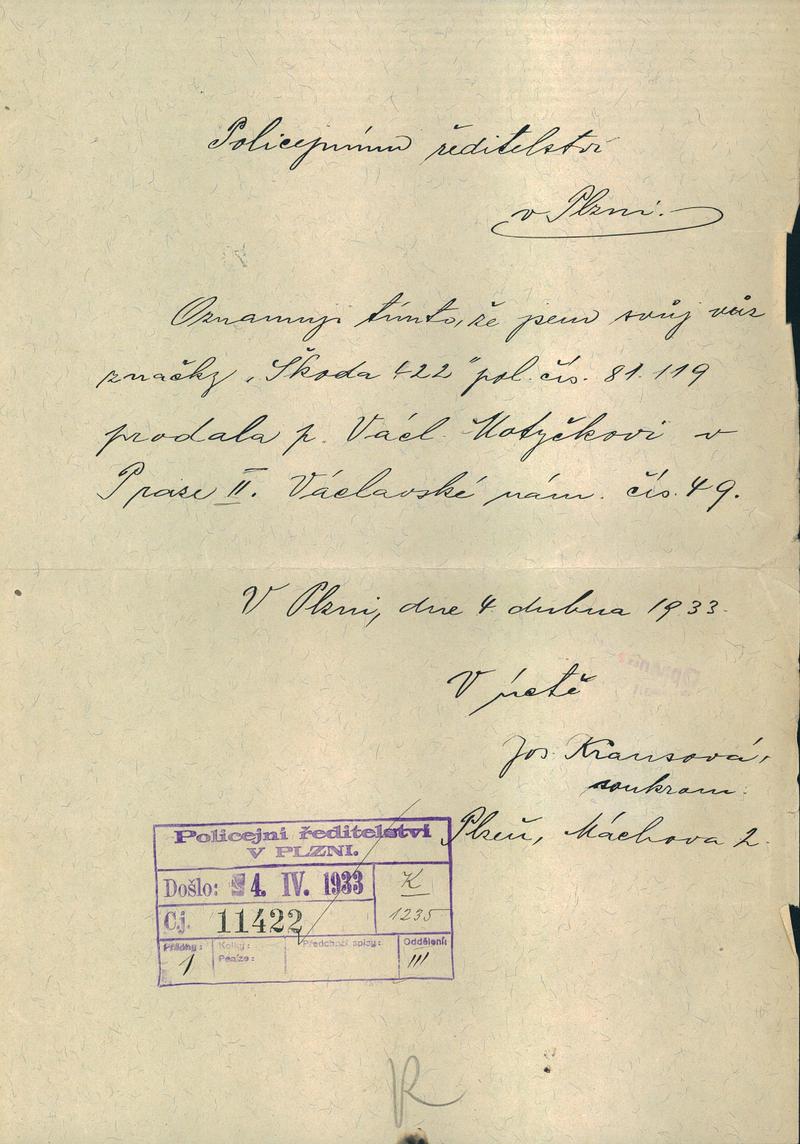 Policejnímu ředitelství
v Plzni.
Oznamuji tímto, že jsem svůj vůz
značky „Škoda 422" pol. čís. 81.119
prodala p. Václ. Motyčkovi v
Praze II. Václavské nám. čís. 49.
V Plzni, dne 4 dubna 1933.
V úctě
Jos. Krausová,
soukrom.
Plzeň, Máchova 2.
Policejní ředitelství
V PLZNI.
Došlo: 4. IV. 1933
K
1235
Čj. 11422
Přílohy: 1
Kolky:
Peníze:
Předchozí spisy:
Oddělení: III
R